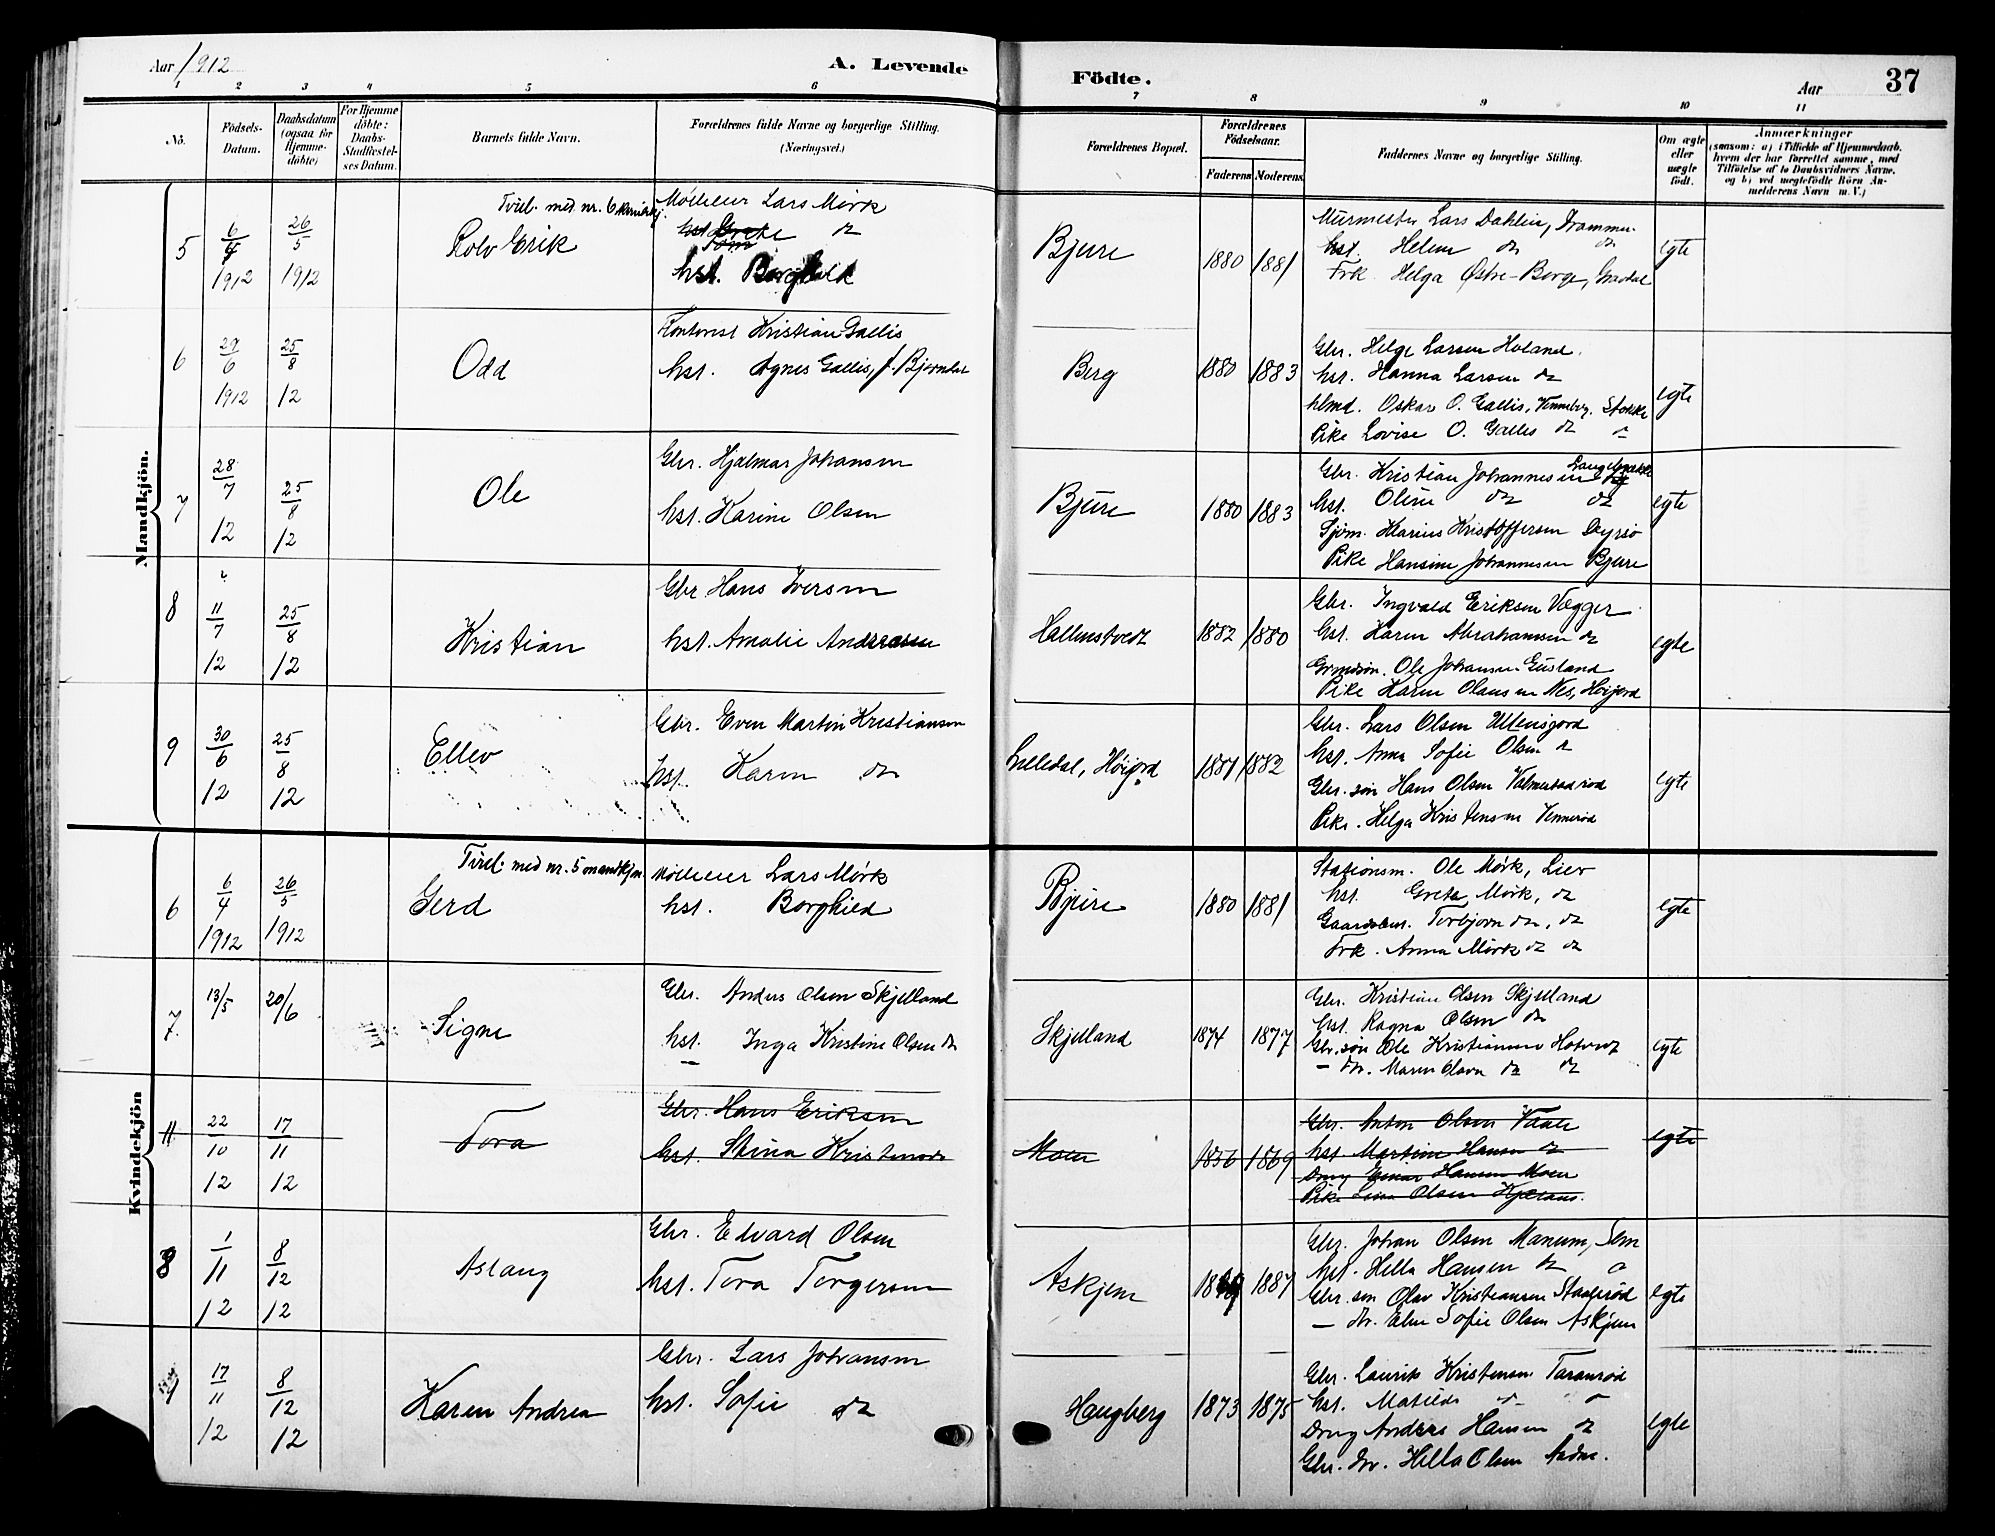 Aar 1912
A. Levende
Födte.
Aar
37
1 2 3 4 5 6 7 8 9 10 11
No.
Födsels-Datum.
Daabsdatum (ogsaa för Hjemme-döbte)
For Hjemme döbte: Daabs-Stadfæstel-ses Datum.
Barnets fulde Navn.
Forældrenes fulde Navne og borgerlige Stilling.
(Næringsvei.)
Forældrenes Bopæl.
Forældrenes Födselsaar.
Faderens Moderens
Faddernes Navne og borgerlige Stilling.
Om ægte eller uægte födt.
Anmærkninger
(saasom: a) i Tilfælde af Hjemmedaab.
hvem der har forrettet samme, med
Tilföielse af to Daabsvidners Navne.
og b) ved uægtefödte Börn An-
melderens Navn m. V.)
Mandkjön.
5
6/4 1912
26/5 1912
Tvil. med nr. 6 kvindekj.
Rolv Erik
Møller Lars Mørk
hst. Grete do
hst. Borghild
Bjure
1880 1881
Murmester Lars Dahlin, Drammen
hst. Helene do do
Frk Helga Østre-Borge,
egte
6
29/6 1912
25/8 12
Odd
Kontorist Kristian Gallis
hst. Agnes Gallis, f. Bjørndal
Berg
1880 1883
Gbr. Helge Larsen Holand.
hst. Hanna Larsen do
Oskar O. Gallis, Stokke
Pike Lovise O. Gallis do
egte
7
28/7 12
25/8 12
Ole
Gbr. Hjalmar Johansen
hst. Karine Olsen
Bjure
1880 1883
Gbr. Kristian Johannesen
hst. Oline do do
Sjøm. Marius Kristoffersen Dyrsø
Pike Hansine Johannesen Bjure
egte
8
11/7 12
25/8 12
Kristian
Gbr Hans Iversen
hst. Amalie Andreasen
Hallenstvedt
1882 1880
Gbr. Ingvald Eriksen Vægger
hst. Karen Abrahamsen do
Ole Johansen Gusland
Pike Karen Olausen Nes, Høijord
egte
9
30/6 12
25/8 12
Ellev
Gbr. Even Martin Kristiansen
hst. Karen do
Lilledal, Høijord
1881 1882
Gbr. Lars Olsen
hst. Anna Sofie Olsen do
Gbr. søn Hans Olsen Valmestadrød
Pike. Helga Kristensen Vennerød
egte
Kvindekjön
6
6/4 1912
26/5 1912
Tvil. med nr. 5 mandkjøn
Gerd
Møller Lars Mørk
hst. Borghild
Bjure
1880 1881
Stationsm. Ole Mørk, Lier
hst. Grete Mørk, do
Torbjørn do, do
Frk. Anna Mørk do do
egte
7.
13/5
20/6
Signe
Gbr. Anders Olsen Skjelland
hst. Inga Kristine Olsen do
Skjelland
1874 1877
Gbr. Kristian Olsen Skjelland
hst. Ragna Olsen do
Gbr. søn Ole Kristiansen Hotvedt
– dr. Maren Olsen do do
egte
11
22/10 12
17/11 12
Tora
Gbr. Hans Eriksen
hst. Stina Kristensen
Moen
1856 1869
Gbr. Anton Olsen Vaale
hst Martine Hansen do
Dreng Einar Hansen Moen
Pike Lina Olsen
egte
8
1/11 12
8/12 12
Aslaug
Gbr. Edvard Olsen
hst. Tora Torgersen
Askjem
1887
Gbr. Johan Olsen Manum, Sem
hst. Hella Hansen do
Gbr. søn Olav Kristiansen
– dr. Elen Sofie Olsen Askjem
egte
9
17/11 12
8/12 12
Karen Andrea
Gbr. Lars Johansen
hst. Sofie do
Haugberg
1873 1875
Gbr. Laurits Kristensen Taranrød
hst. Matilde
Dreng Anders Hansen do
Gbr. dr. Hella Olsen
egte